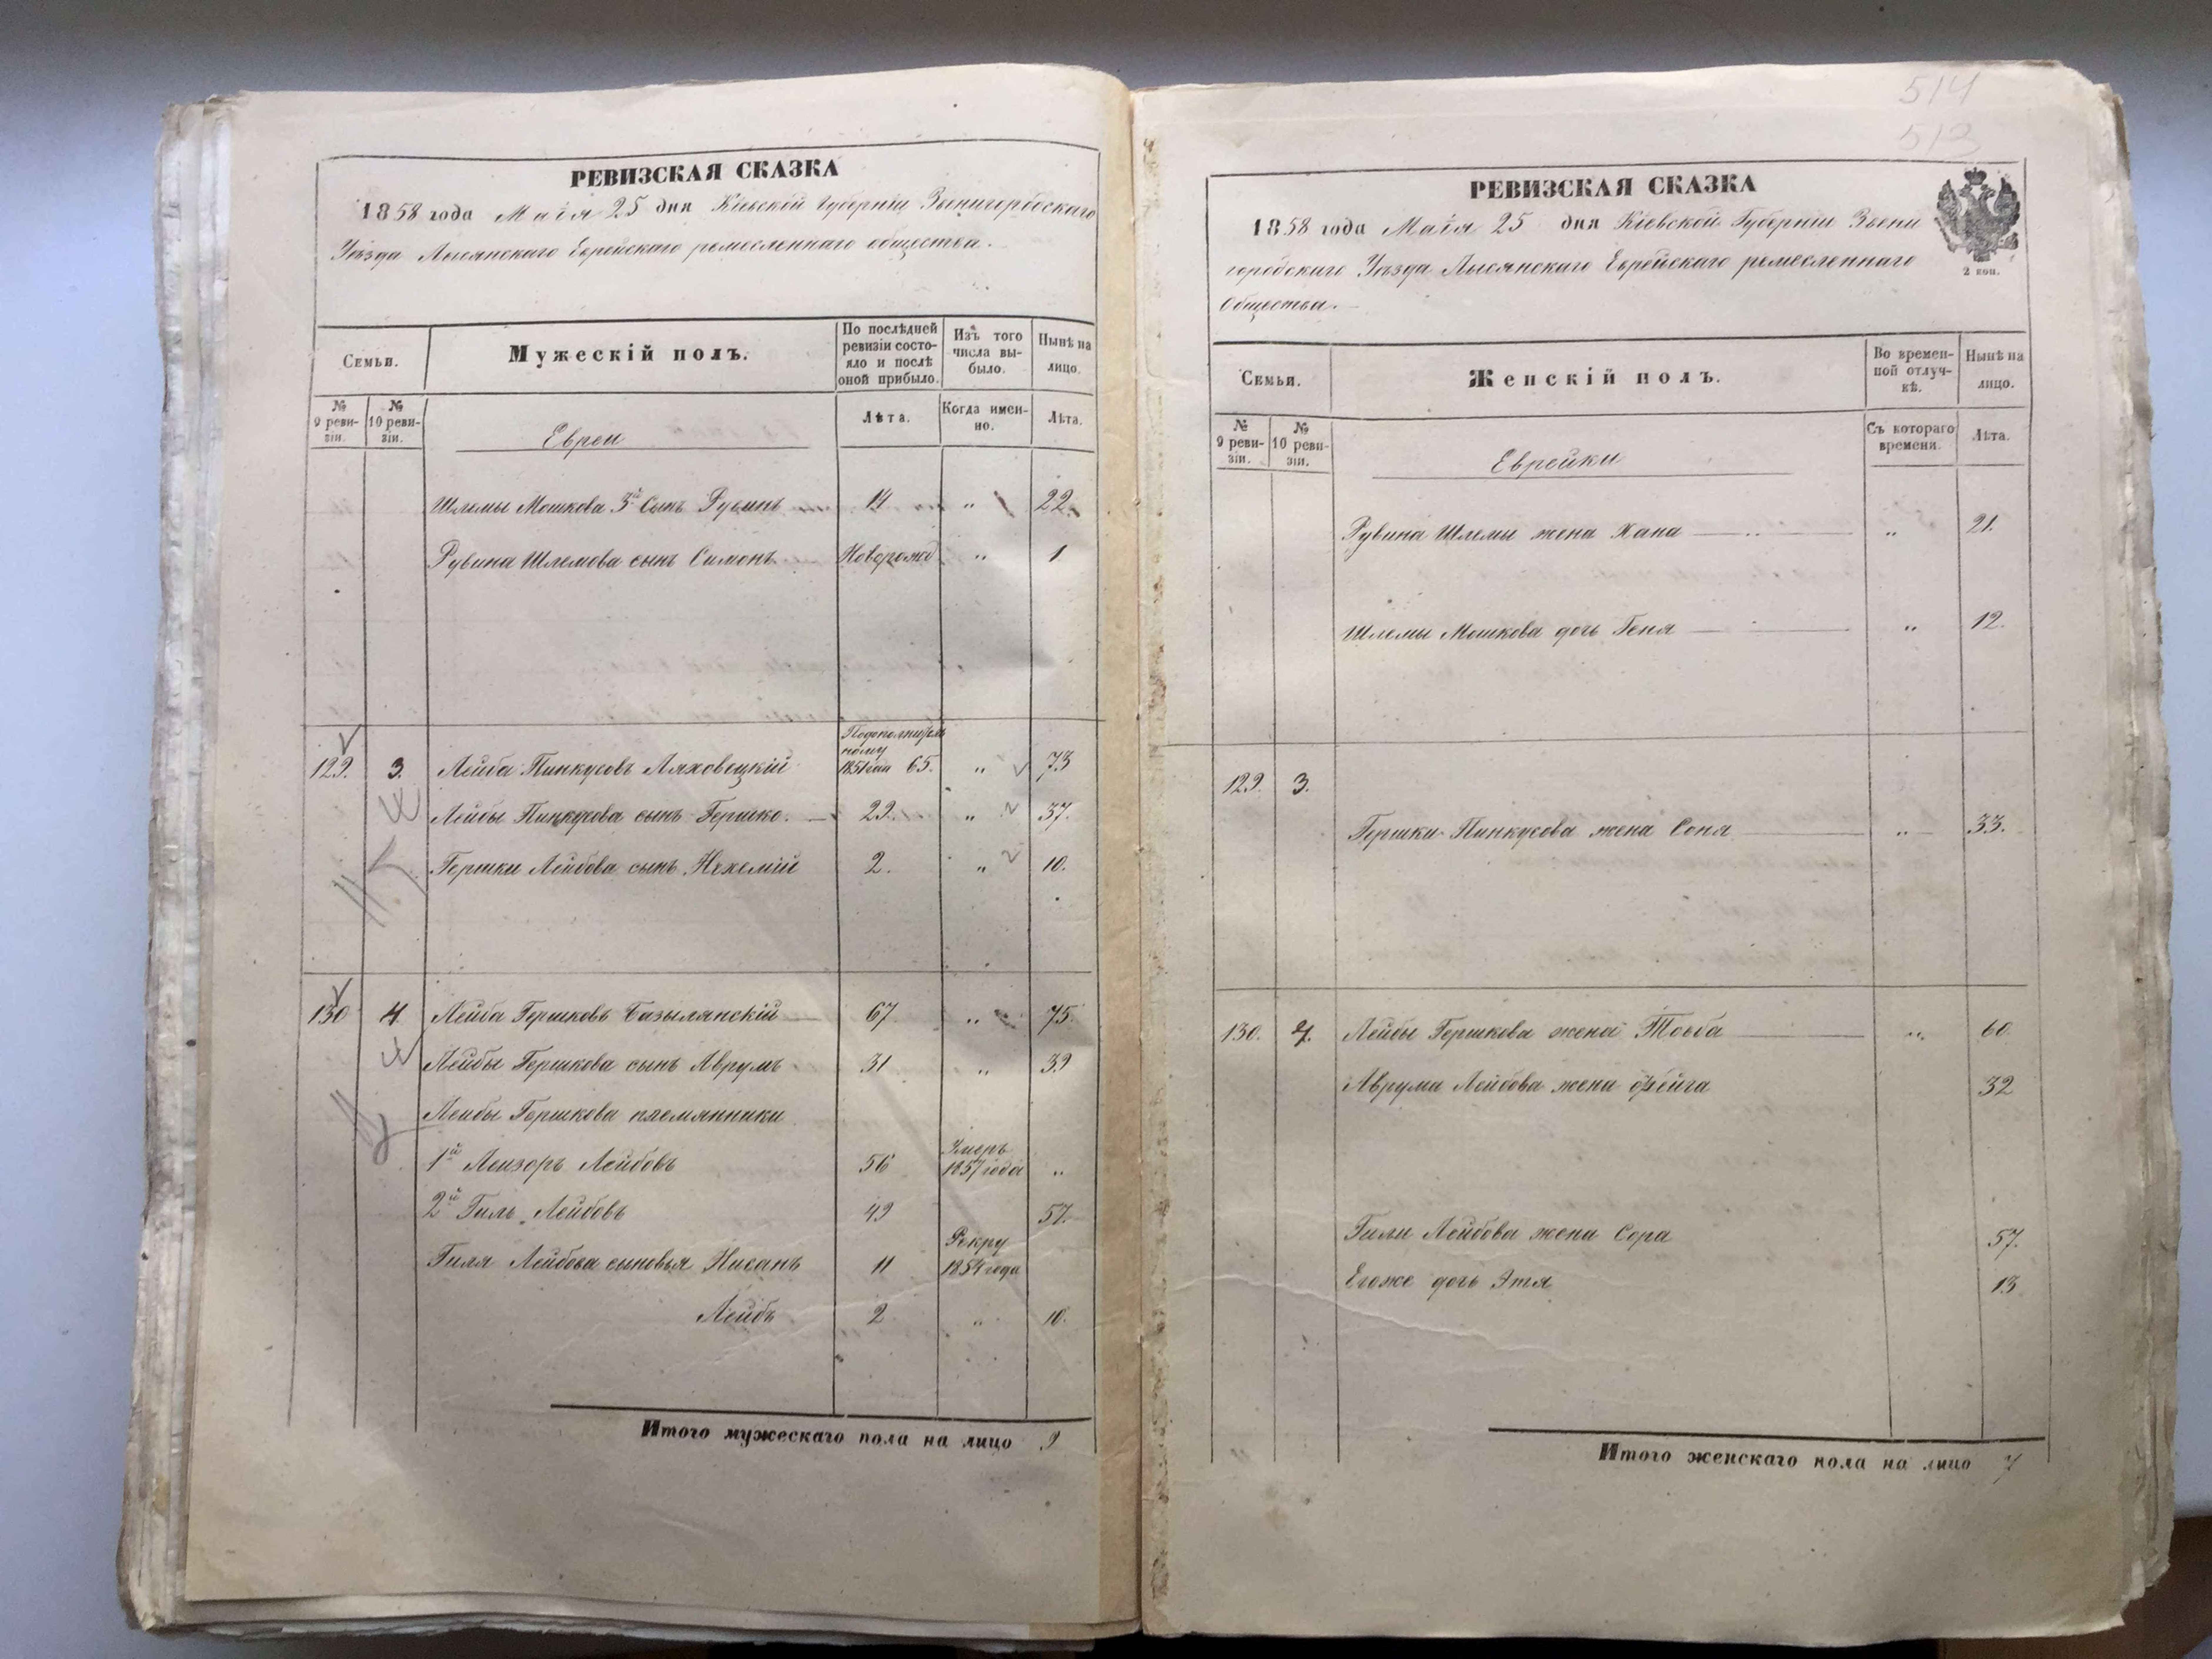 РЕВИЗСКАЯ СКАЗКА
1858 года Маія 25 дня Кіевской Губерніи Звенигородскаго
Уѣзда Лысянскаго Еврейскаго ремесленнаго общества.
Семьи.
Мужескій полъ.
По послѣдней ревизіи состояло и послѣ оной прибыло.
Изъ того числа выбыло.
Нынѣ на лицо.
№ 9 ревизіи.
№ 10 ревизіи.
Евреи
Лѣта.
Когда именно.
Лѣта.
Шлемы Мошкова 3й Сынъ Рувинъ 14 „ 22.
Рувина Шлемова сынъ Симонъ Новорожд „ 1
129. 3. Лейба Пинкусовъ Ляховецкій 1851 65. „ 73
Лейбы Пинкусова сынъ Гершко. 29. „ 37.
Гершки Лейбова сынъ Нехемій 2. „ 10.
130 4. Лейба Гершковъ Базылянскій 67 „ 75.
Лейбы Гершкова сынъ Аврумъ 31 „ 39
Лейбы Гершкова племянники
1й Леизоръ Лейбовъ 56 Умеръ 1857 года „
2й Гиль Лейбовъ 49 57.
Гиля Лейбова сыновья Нисанъ 11 Рекру 1854 года
Лейбъ 2 „ 10.
Итого мужескаго пола на лицо 9
514
513
РЕВИЗСКАЯ СКАЗКА
1858 года Маія 25 дня Кіевской Губерніи Звени
городскаго Уѣзда Лысянскаго Еврейскаго ремесленнаго
Общества.
2 коп.
Семьи.
Женскій полъ.
Во временной отлучкѣ.
Нынѣ на лицо.
№ 9 ревизіи.
№ 10 ревизіи.
Еврейки
Съ котораго времени.
Лѣта.
Рувина Шлемы жена Хана „ 21.
Шлемы Мошкова дочь Геня „ 12.
129. 3.
Гершки Пинкусова жена Соня „ 33.
130. 4. Лейбы Гершкова жена Тоьба „ 60
Аврума Лейбова жена Фейга 32
Гили Лейбова жена Сора 57.
Егоже дочь Этя 13
Итого женскаго пола на лицо 7